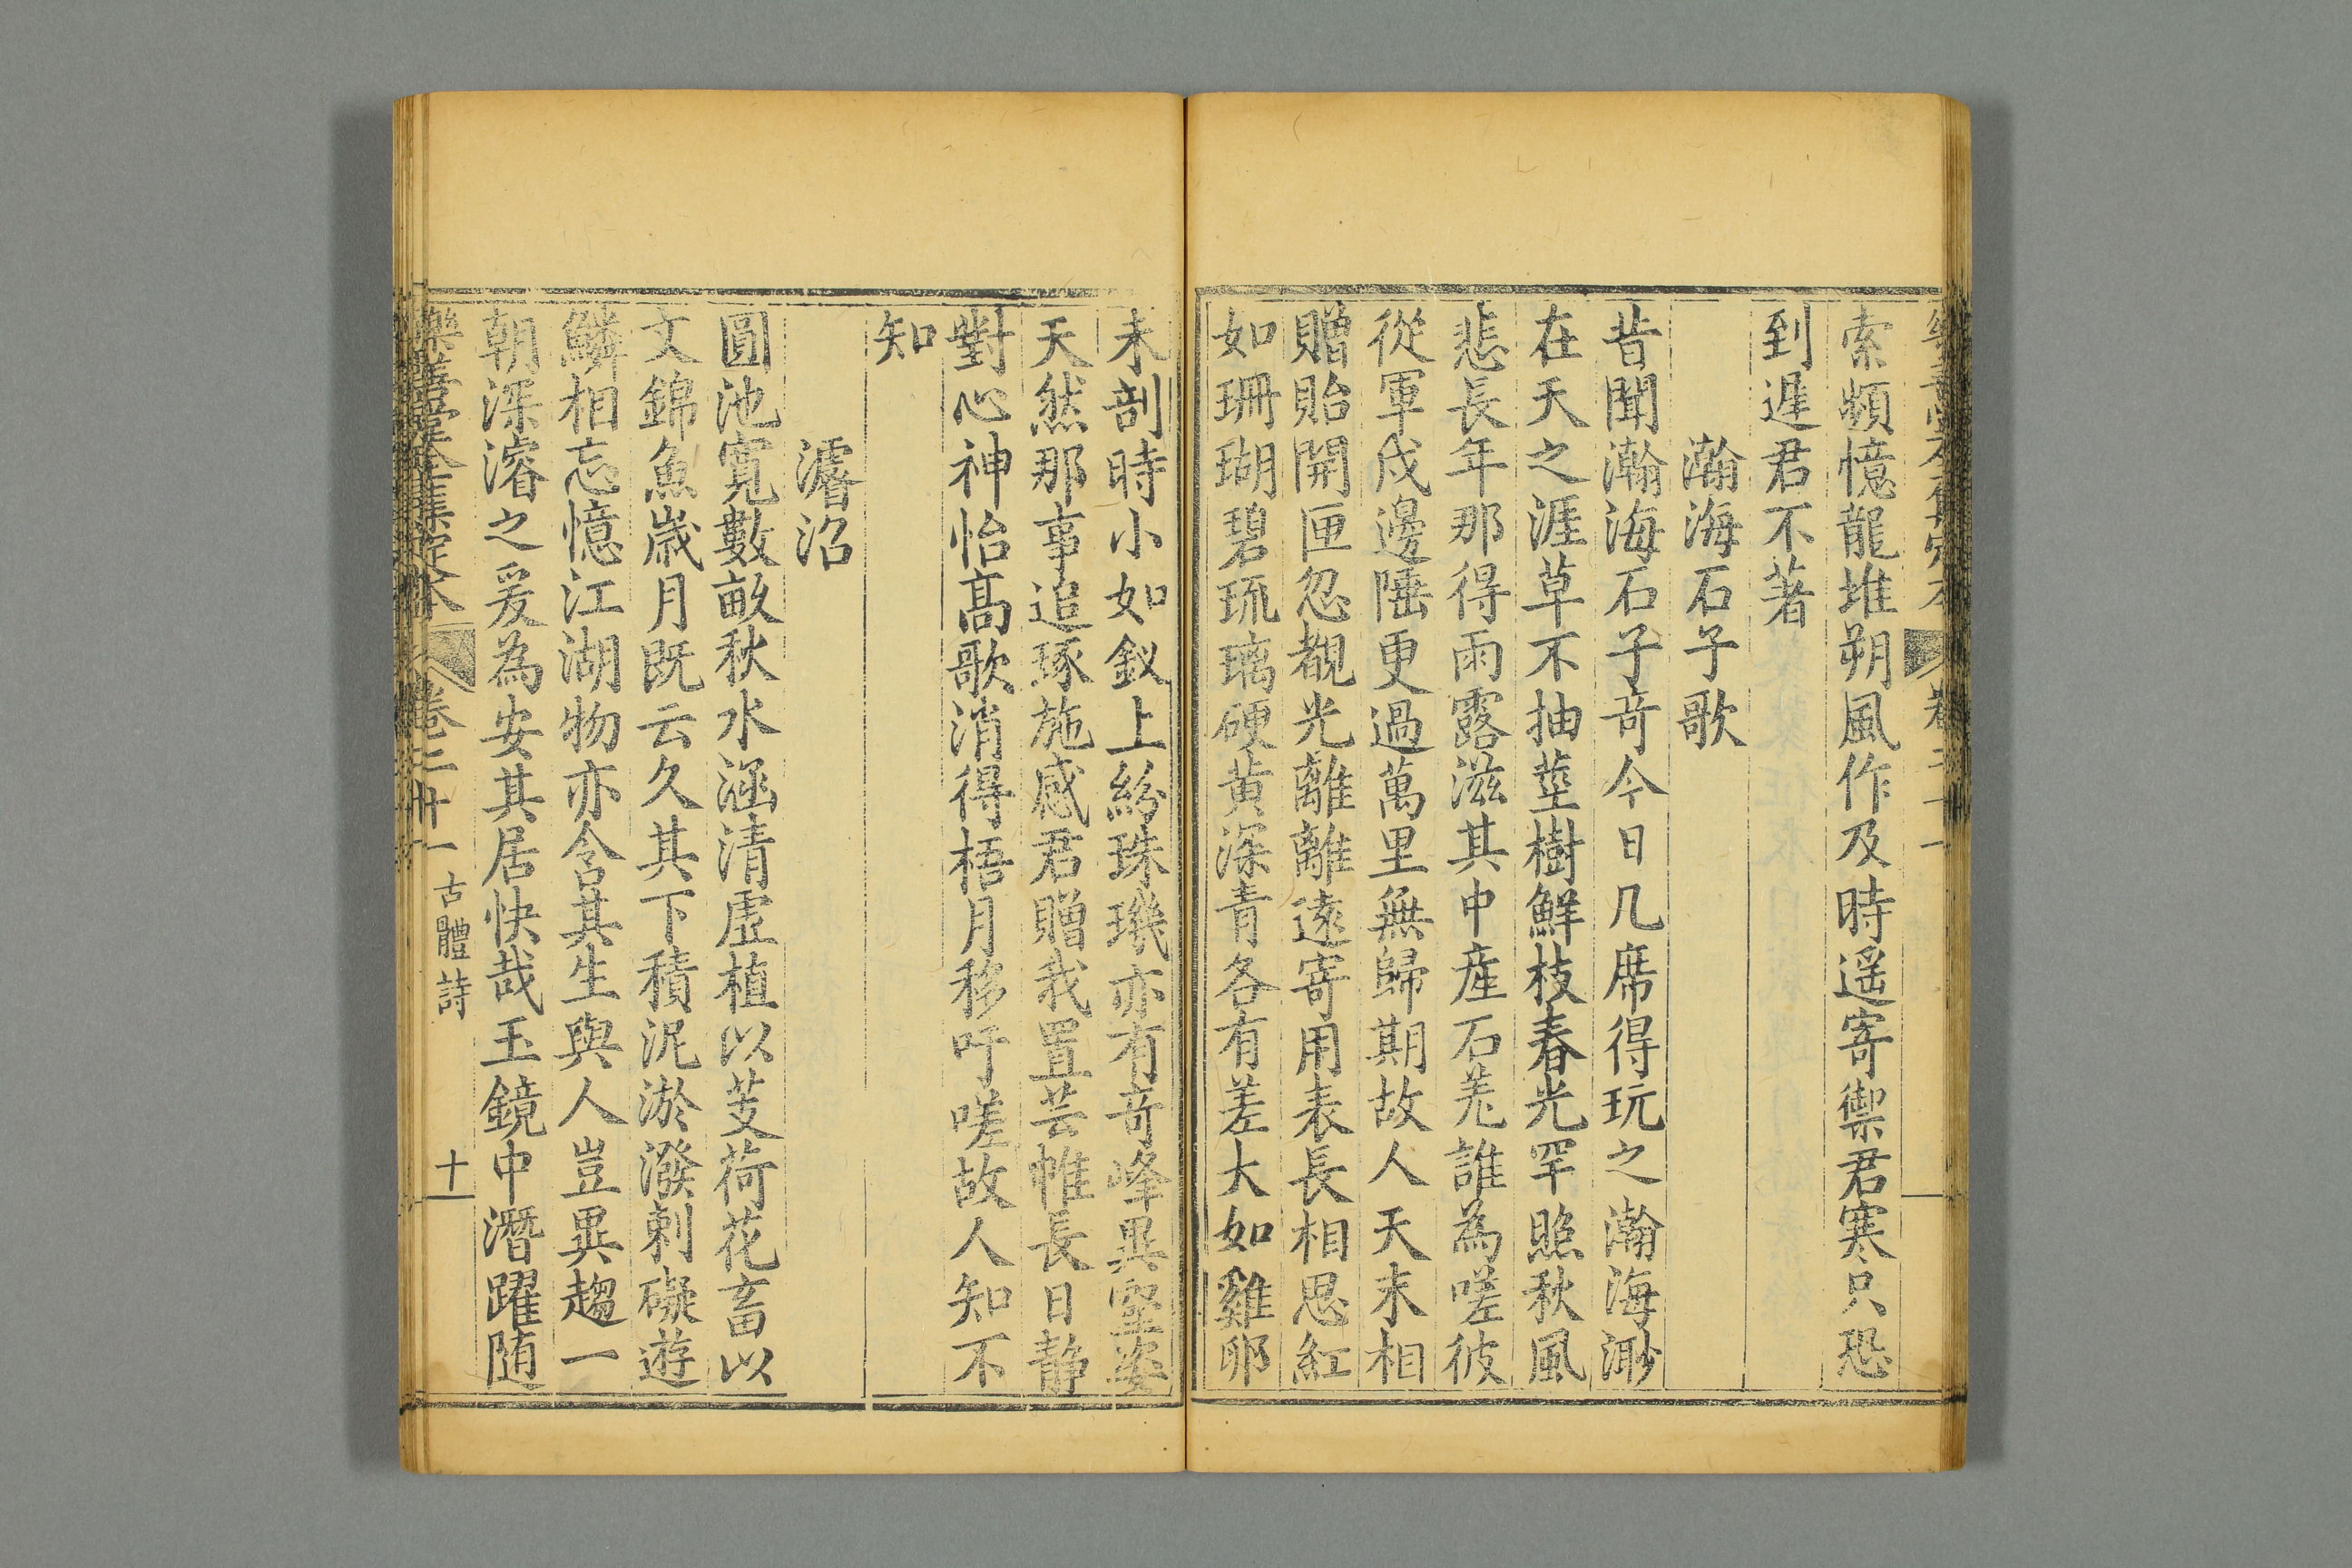 索頻憶龍堆朔風作及時遥寄禦君寒只恐
到遲君不著
瀚海石子歌
昔聞瀚海石子竒今日几席得玩之瀚海渺
在天之涯草不抽莖樹鮮枝春光罕照秋風
悲長年那得雨露滋其中產石羌誰為嗟彼
從軍戍邊陲更過萬里無歸期故人天末相
贈貽開匣忽覩光離離遠寄用表長相思紅
如珊瑚碧琉璃硬黃深青各有差大如雞卵
未剖時小如釵上紛珠璣亦有竒峰異壑姿
天然那事追琢施感君贈我置芸帷長日静
對心神怡高歌消得梧月移吁嗟故人知不
知
濬沼
圓池寬數畝秋水涵清虛植以芰荷花畜以
文錦魚歳月既云久其下積泥淤潑剌礙遊
鱗相忘憶江湖物亦含其生與人豈異趨一
朝深濬之爰為安其居快哉玉鏡中潛躍随
樂善堂全集定本 卷二十一 古體詩 十